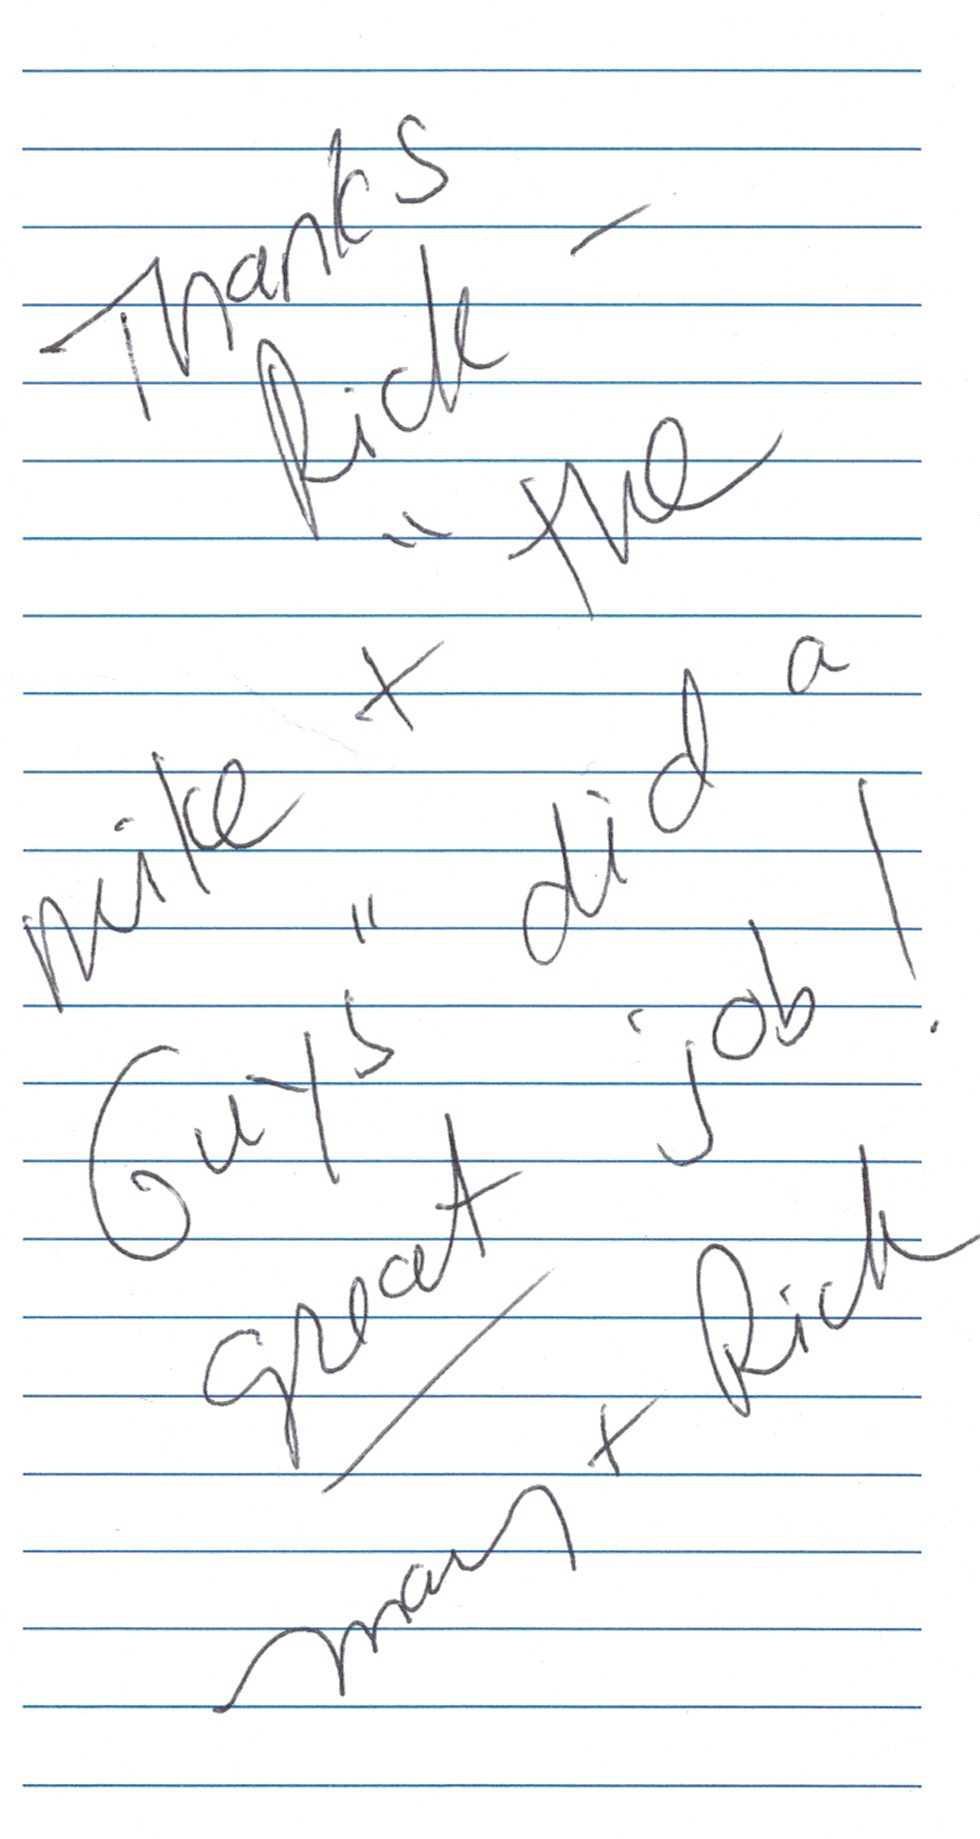 Thanks
Rick —
Mike + "the
Guys" did a
great job!
Mary + Rick